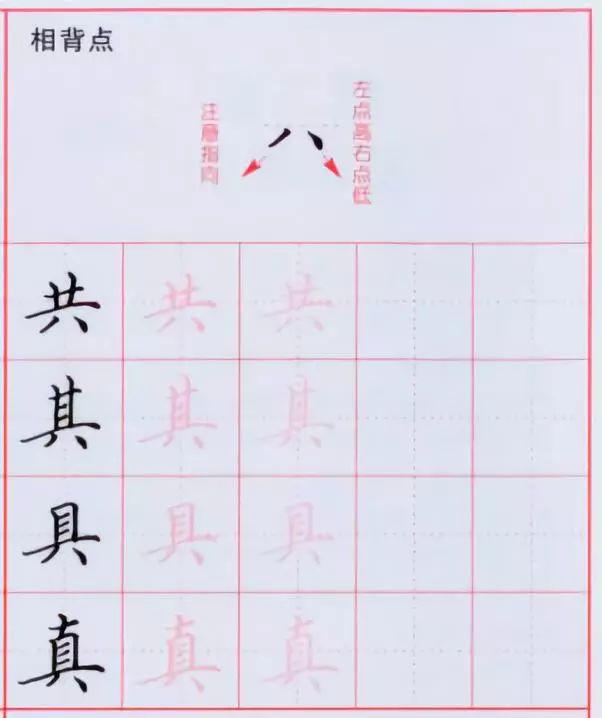 相背点
注意指向
八
左点高右点低
共 共 共
其 其 其
具 具 具
真 真 真